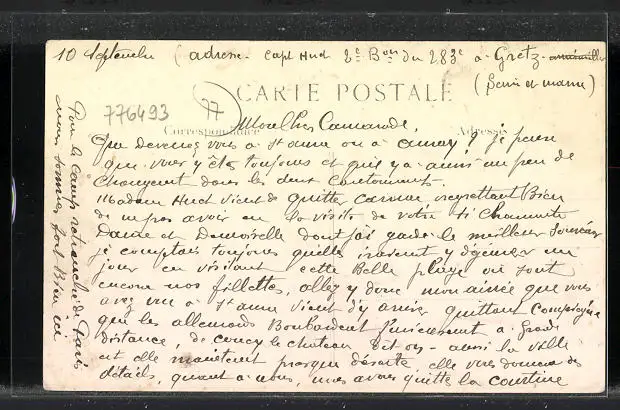 10 Septembre (adresse. Capt Hud 2e Bon du 283e à Gretz
(Seine et marne)
776493
77
CARTE POSTALE
Correspondance
Adresse
Mon Cher Camarade,
Que devenez vous à St anne ou à annoy ? je pense
que vous y êtes toujours et qu'il y a aussi un peu de
changement dans les deux cantonnements.
Madame Hud vient de quitter regrettant Bien
de n'pas avoir eu la visite de votre si charmante
Dame et Demoiselle dont j'ai gardé le meilleur souvenir
je comptais toujours qu'elles iraient y déjeuner un
jour en visitant cette Belle plage où sont
encore nos fillettes, allez y donc mon aînée que vous
avez vue à St anne vient d'y arriver quittant Compiègne
que les allemands Bombardent furieusement à Grande
distance, de coucy le chateau dit on - aussi la ville
est elle maintenant presque déserte, elle vous donnera des
détails, quant à nous, nous avons quitté la courtine
Pour le camp retranché de Paris
nous sommes fort Bien ici